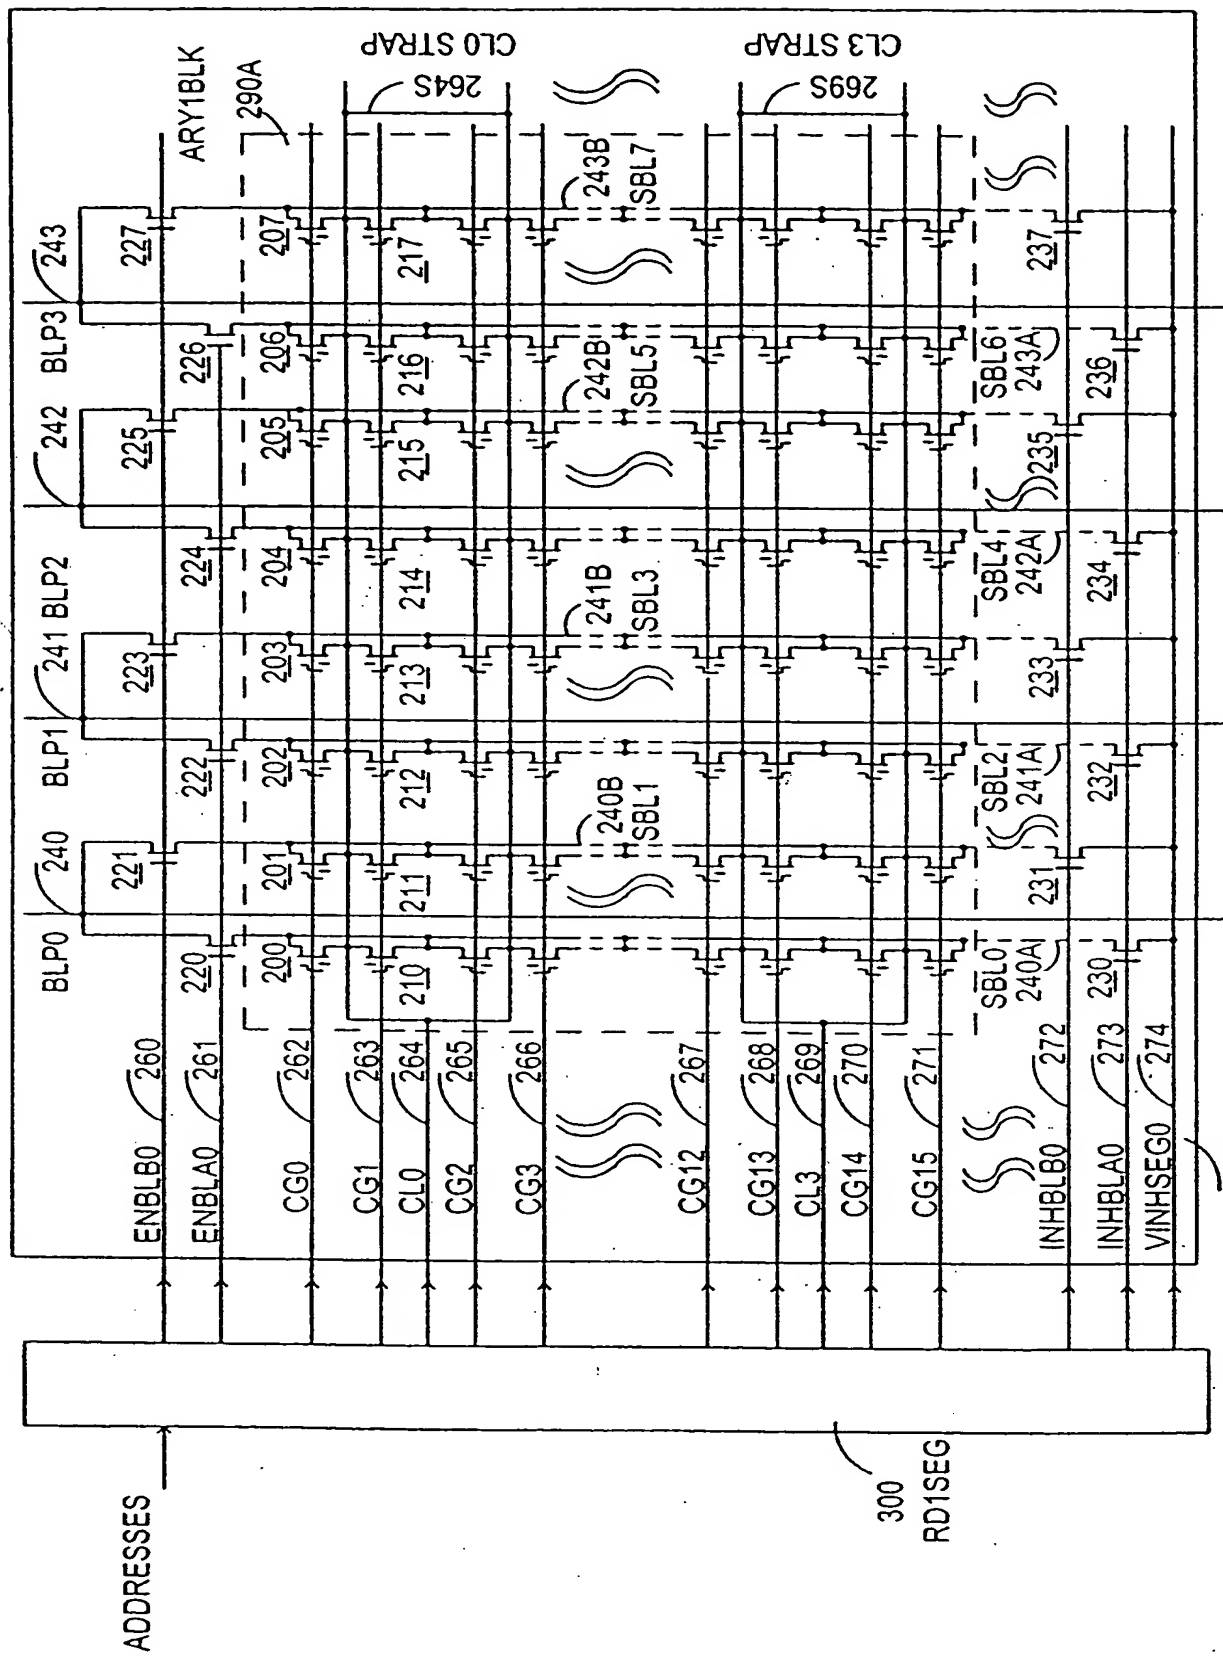 ADDRESSES
300
RD1SEG
ENBLB0 260
ENBLA0 261
CG0 262
CG1 263
CL0 264
CG2 265
CG3 266
CG12 267
CG13 268
CL3 269
CG14 270
CG15 271
INHBLB0 272
INHBLA0 273
VINHSEG0 274
BLP0 240
BLP1 241
BLP2 242
BLP3 243
ARY1BLK
290A
220 221 222 223 224 225 226 227
200 201 202 203 204 205 206 207
210 211 212 213 214 215 216 217
264S
CL0 STRAP
240B
SBL1
241B
SBL3
242B
SBL5
243B
SBL7
269S
CL3 STRAP
SBL0
240A
SBL2
241A
SBL4
242A
SBL6
243A
230 231 232 233 234 235 236 237